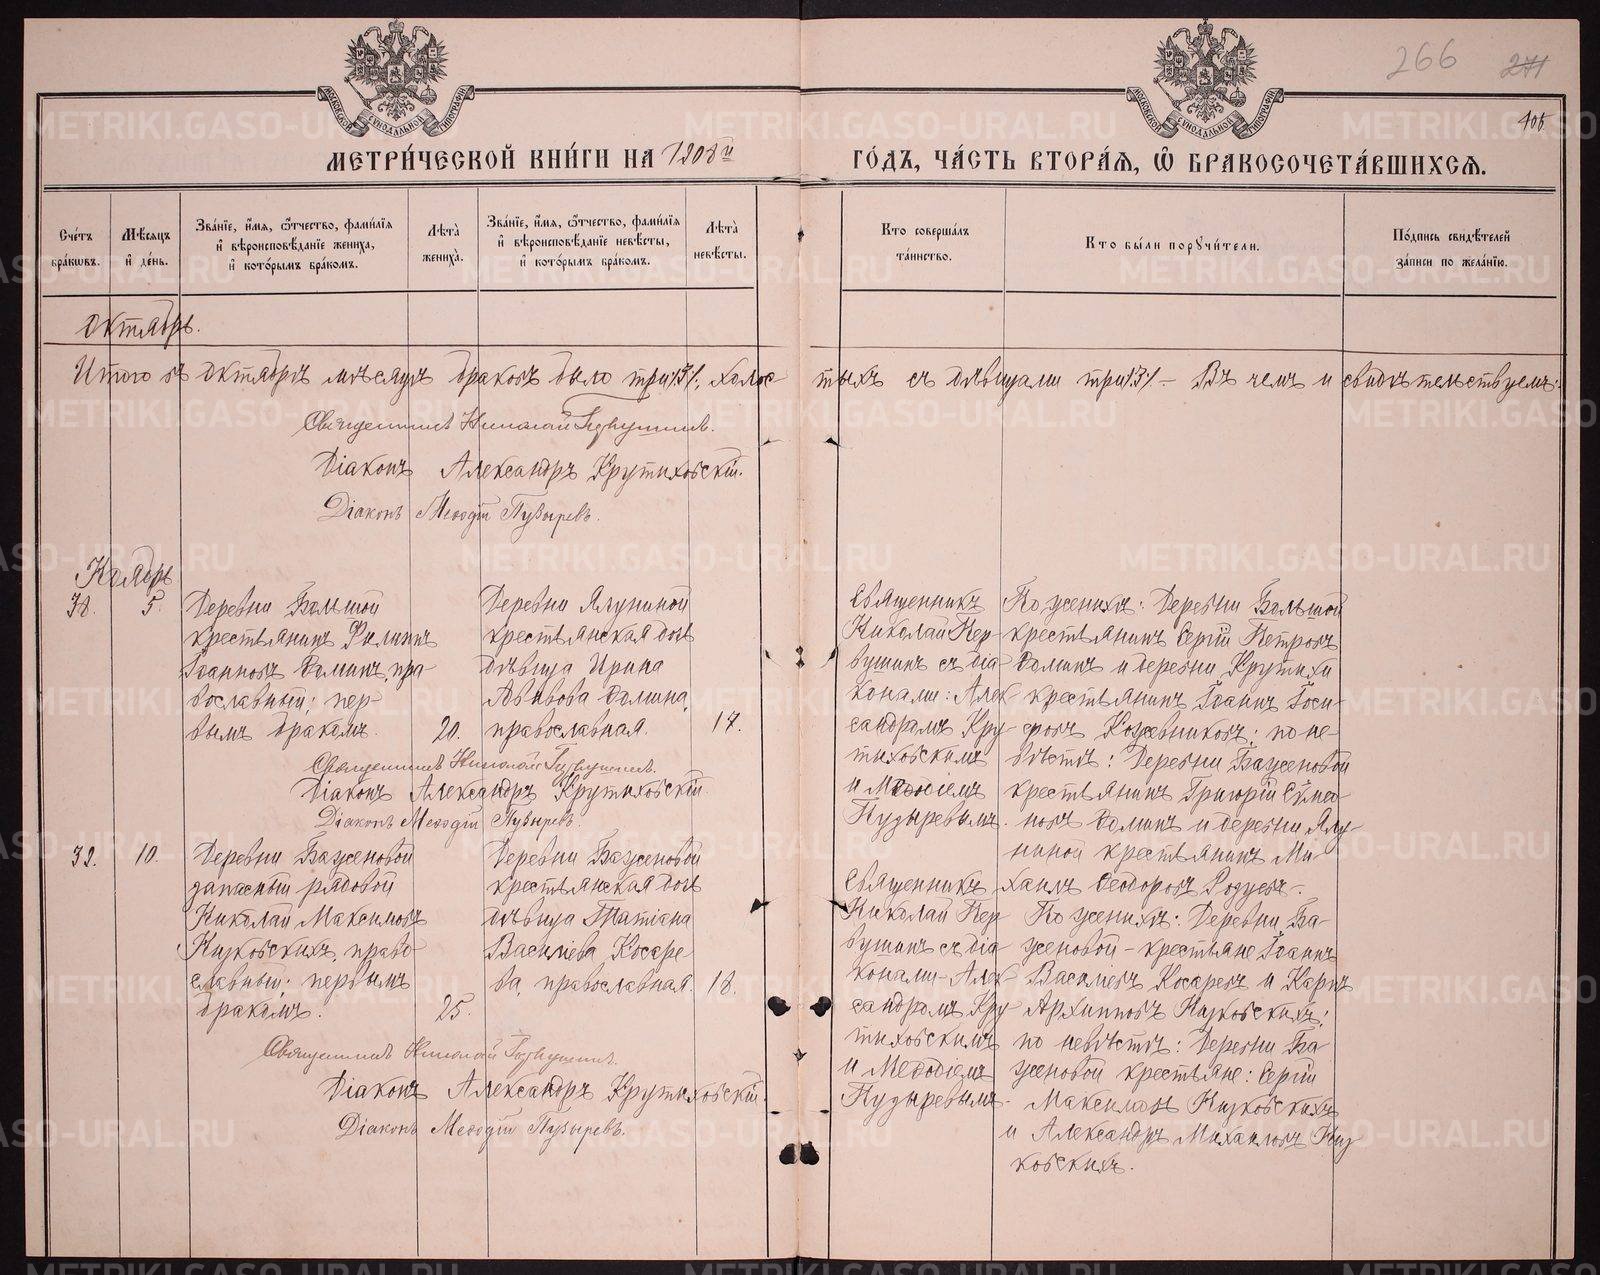 266 271
МОСКОВСКОЙ СѴНОДАЛЬНОЙ ТИПОГРАФІИ
МОСКОВСКОЙ СѴНОДАЛЬНОЙ ТИПОГРАФІИ
МЕТРИ́ЧЕСКОЙ КНИ́ГИ НА 1908й ГО́ДЪ, ЧА́СТЬ ВТОРА́Я, Ѡ҆ БРАКОСОЧЕТА́ВШИХСЯ.
Сче́тъ бра́кѡвъ.
Мѣ́сяцъ и҆ де́нь.
Зва́нїе, и҆́мя, ѻ҆́тчество, фами́лїя и҆ вѣроисповѣ́данїе жениха, и҆ кото́рымъ бра́комъ.
Лѣ́та жениха̀.
Зва́нїе, и҆́мя, ѻ҆́тчество, фами́лїя и҆ вѣроисповѣ́данїе невѣ́сты, и҆ кото́рымъ бра́комъ.
Лѣ́та невѣ́сты.
Кто соверша́лъ та́инство.
Кто бы́ли порꙋчи́тели.
По́дпись свидѣ́телей за́писи по жела́нїю.
Октябрь.
Итого въ октябрѣ мѣсяцѣ браковъ было три /3/, холос-тыхъ съ дѣвицами три /3/ – Въ чемъ и свидѣтельствуемъ:
Священникъ Николай Первушинъ.
Діаконъ Александръ Крутиховскій.
Діаконъ Меѳодій Пузыревъ.
Ноябрь
38.
5.
Деревни Большой
крестьянинъ Филиппъ
Іоанновъ Соминъ, пра
вославный; пер-
вымъ бракомъ.
20.
Деревни Ялуниной
крестьянская дочь
дѣвица Ирина
Соминa,
православная.
17.
Священникъ
Николай Пер-
вушинъ съ діа-
конами: Алек-
сандромъ Кру-
тиховскимъ
и Меѳодіемъ
Пузыревымъ.
По женихѣ: Деревни Большой
крестьянинъ Сергій Петровъ
Соминъ и деревни Крутихи
крестьянинъ Іоаннъ Іоси-
фовъ Кожевниковъ; по не-
вѣстѣ: Деревни Баженовой
крестьянинъ Григорій Симео-
новъ Соминъ и деревни Ялу-
ниной крестьянинъ Ми-
хаилъ Ѳеодоровъ
Священникъ Николай Первушинъ.
Діаконъ Александръ Крутиховскій
Діаконъ Меѳодій Пузыревъ.
39.
10.
Деревни Баженовой
запасный рядовой
Николай Максимовъ
правo-
славный; первымъ
бракомъ.
25.
Деревни Баженовой
крестьянская дочь
дѣвица Татіана
Васильева Косаре
ва, православная.
18.
Священникъ
Николай Пер
вушинъ съ діа
конами – Алек-
сандромъ Кру-
тиховскимъ
и Меѳодіемъ
Пузыревымъ.
По женихѣ: Деревни Ба-
женовой – крестьяне Іоаннъ
Васильевъ Косаревъ и Карпъ
Архиповъ
по невѣстѣ: Деревни Ба
женовой крестьяне: Сергій
Максимовъ
и Александръ Михаиловъ
Священникъ Николай Первушинъ.
Діаконъ Александръ Крутиховскій.
Діаконъ Меѳодій Пузыревъ.
METRIKI.GASO-URAL.RU